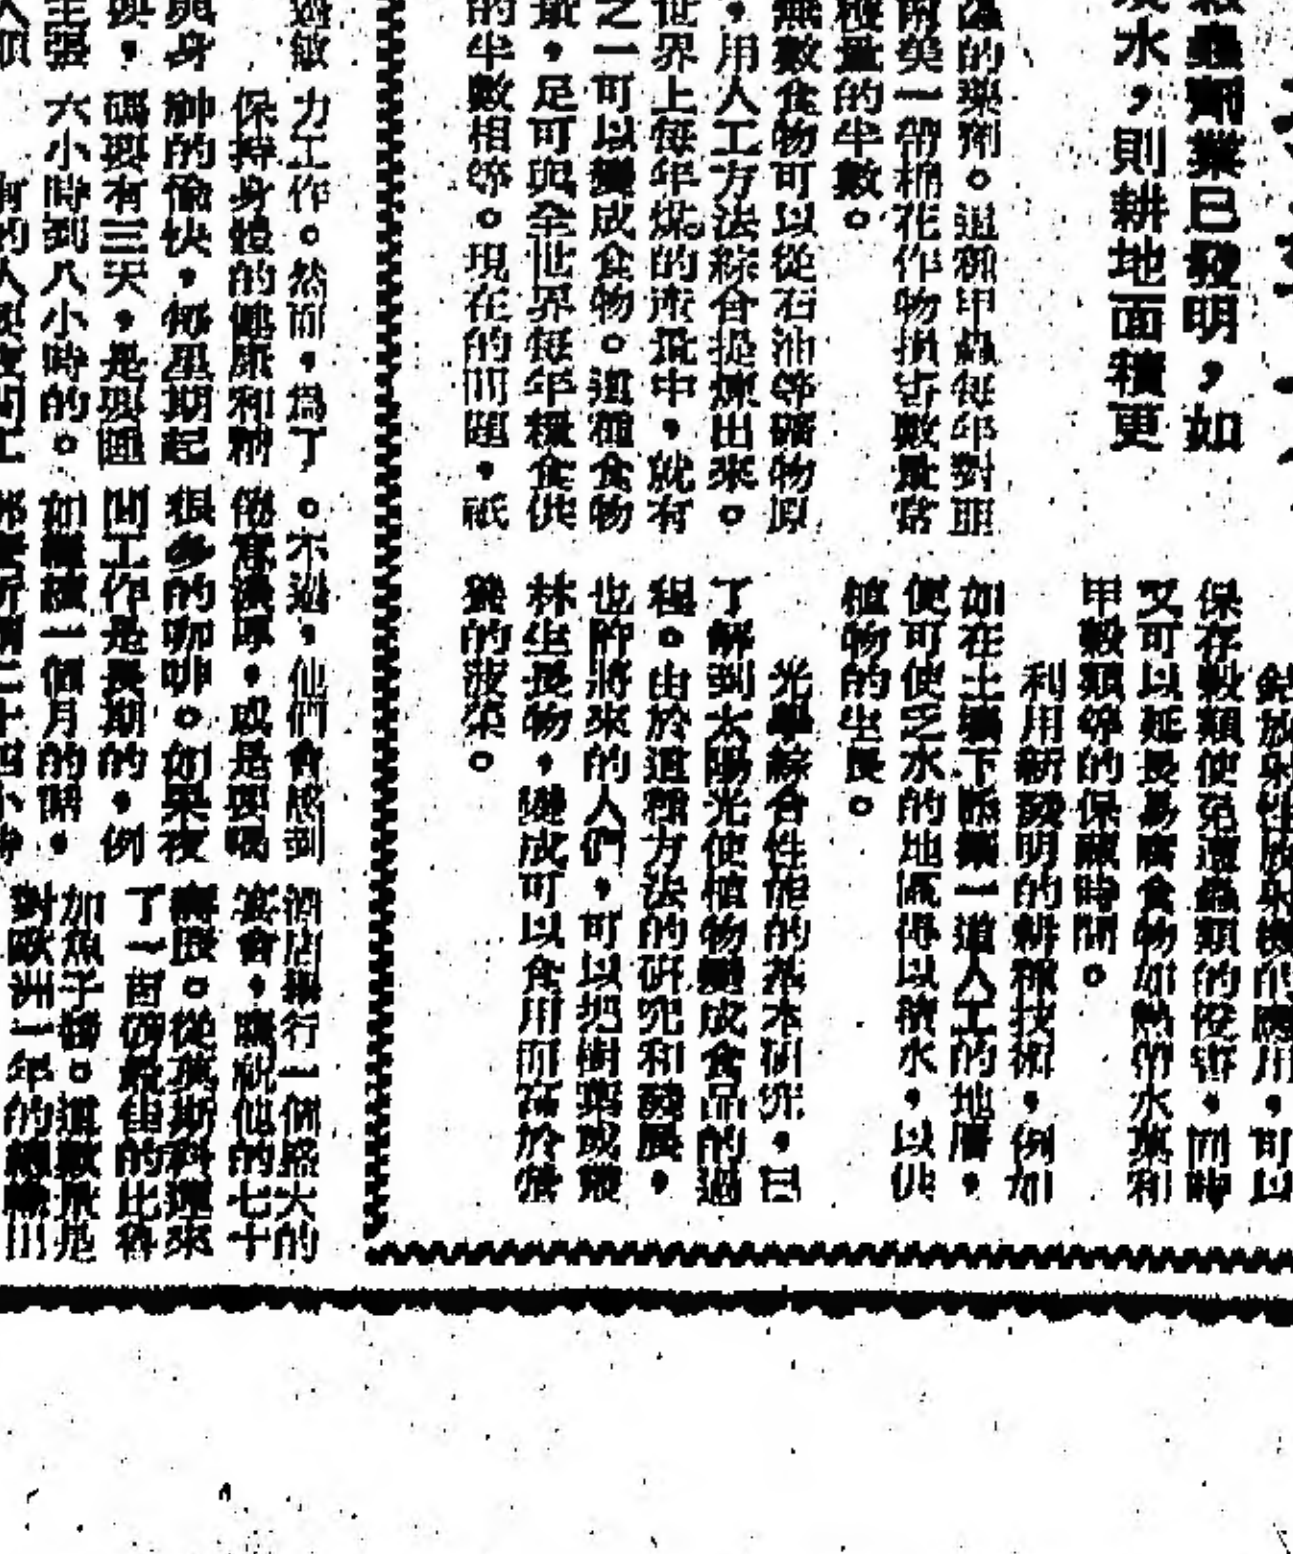 殺蟲劑業已發明，如
水，則耕地面積更
蟲的藥劑。這種甲蟲每年對亞
南美一帶棉花作物損害數量當
種量的半數。
無數食物可以從石油等礦物原
，用人工方法綜合提煉出來。
世界上每年煤的產量中，就有
之一可以變成食物。這種食物
量，足可與全世界每年糧食供
的半數相等。現在的問題，祇
鈷放射性放射機的應用，可以
保存穀類使免遭蟲類的侵害，而時
又可以延長易腐食物如熱帶水菓和
甲殼類等的保藏時間。
利用新發明的耕種技術，例如
如在土壤下舖築一道人工的地層，
便可使乏水的地區得以積水，以供
植物的生長。
光學綜合性能的基本研究，已
了解到太陽光使植物變成食品的過
程。由於這種方法的研究和發展，
也許將來的人們，可以把樹葉或叢
林生長物，變成可以食用而富於營
養的菠菜。
過敏
與身
，
主張
力工作。然而，爲了
保持身體的健康和精
神的愉快，每星期起
碼要有三天，是要睡
六小時到八小時的。
有的人
。不過，他們會感到
倦意濃厚，或是要喝
很多的咖啡。如果夜
間工作是長期的，例
如繼續一個月的話，
二十四小時
酒店舉行一個盛大的
宴會，慶祝他的七十
壽辰。從莫斯科運來
了一百磅最佳的比
加魚子醬。這數量是
對歐洲一年的總輸出